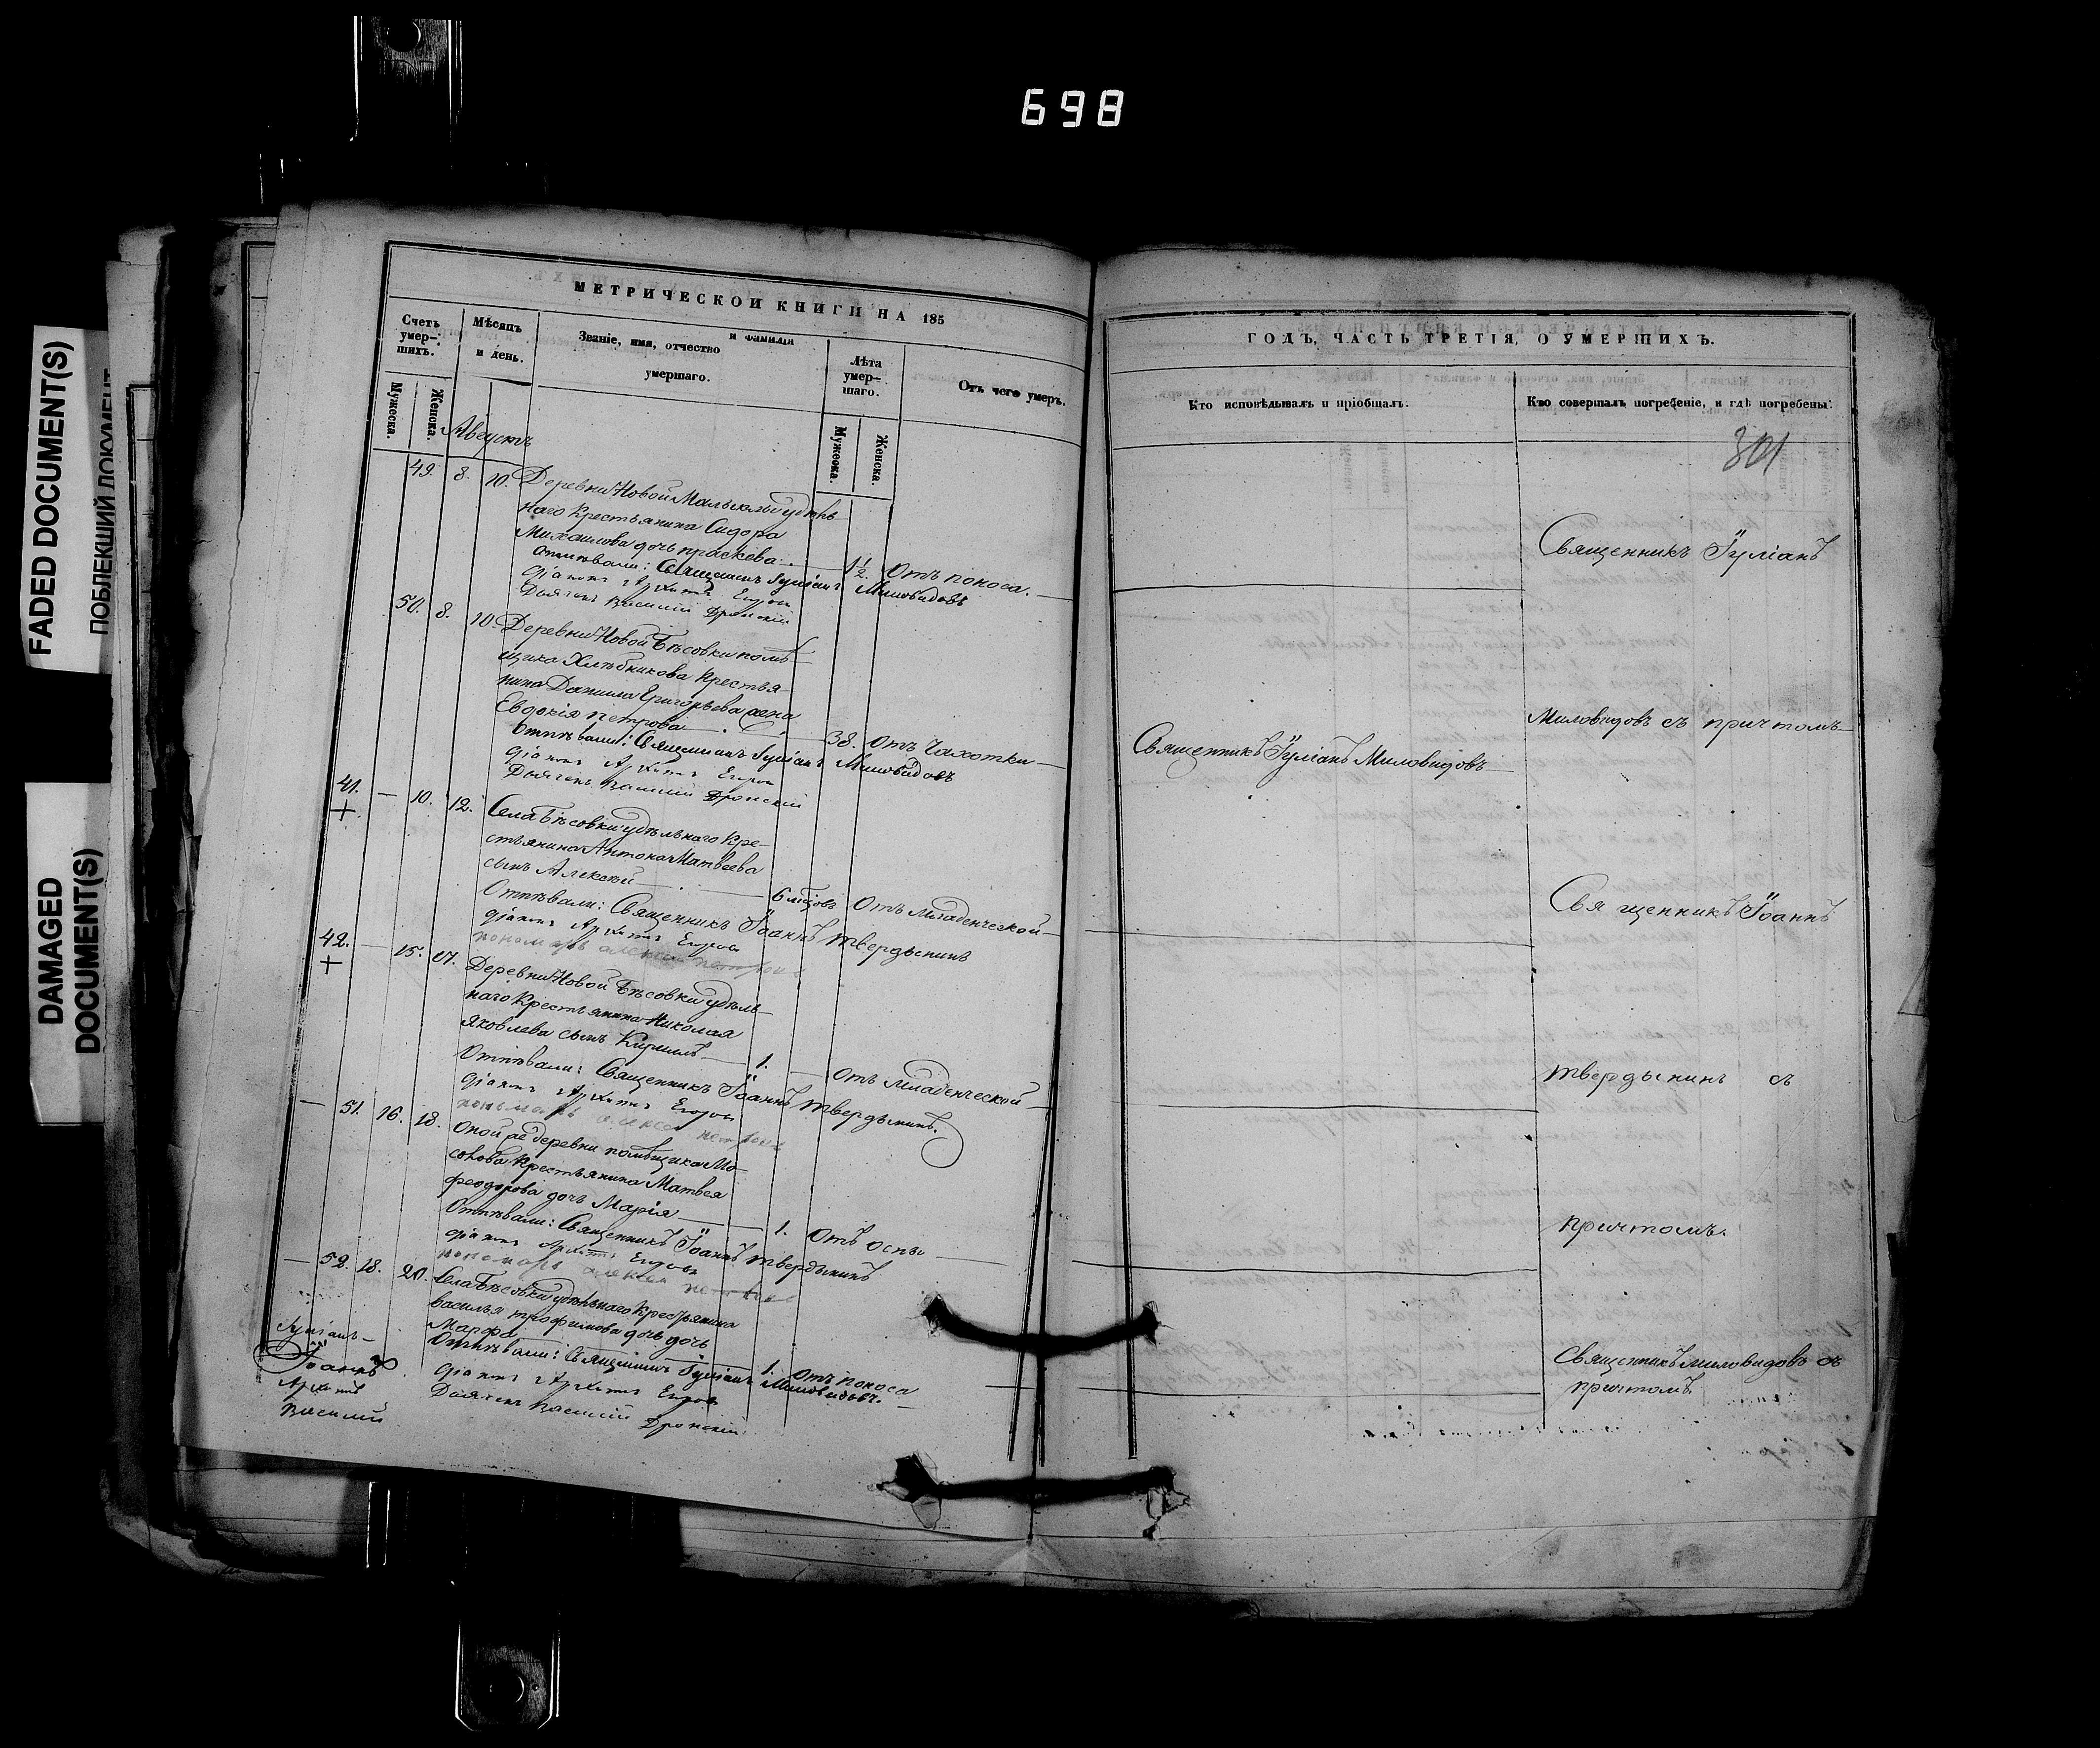 698
FADED DOCUMENT(S)
ПОБЛЕКШИЙ ДОКУМЕНТ
DAMAGED
DOCUMENT(S)
МЕТРИЧЕСКОЙ КНИГИ НА 185
Счетъ умер-шихъ.
Мѣсяцъ и день.
Званіе, имя, отчество и фамилія умершаго.
Лѣта умер-шаго.
Отъ чего умеръ.
Мужеска.
Женска.
Мужеска.
Женска.
Августъ
49. 8. 10. Деревни Новой Малыклы удѣль-
наго Крестьянина Сидора
Михаилова дочь Праскева 1 1/2. Отъ поноса.
Отпѣвали: Священникъ Іуліанъ Миловидовъ
діаконъ Архипъ Егоровъ
Дьячекъ Василій Дронскій
50. 8. 10. Деревни Новой Бѣсовки помѣ-
щика Хлѣбникова Крестья-
нина Данила Григорьева жена
Евдокія Петрова 38. Отъ Чахотки
Отпѣвали: Священникъ Іуліанъ Миловидовъ
діаконъ Архипъ Егоровъ
Дьячекъ Василій Дронскій
41. — 10. 12. Села Бѣсовки удѣльнаго Кре-
+
стьянина Антона Матвеева
сынъ Алексѣй 6 мѣсцовъ Отъ младенческой
Отпѣвали: Священникъ Іоаннъ Твердынинъ
діаконъ Архипъ Егоровъ
пономарь Алексей
42. — 15. 17. Деревни Новой Бѣсовки удѣль-
+
наго Крестьянина Николая
Яковлева сынъ Кириллъ 1. Отъ младенческой
Отпѣвали: Священникъ Іоаннъ Твердынинъ.
діаконъ Архипъ Егоровъ
пономарь Алексей
— 51. 16. 18. Оной же деревни помѣщика Мо-
солова Крестьянина Матвея
Феодорова дочь Марія 1. Отъ оспы
Отпѣвали: Священникъ Іоаннъ Твердынинъ
діаконъ Архипъ Егоровъ
пономарь Алексей
— 52. 18. 20. Села Бѣсовки удѣльнаго Крестьянина
Василья Трофимова дочь дочь
Марфа 1. Отъ поноса
Отпѣвали: Священникъ Іуліанъ Миловидовъ.
діаконъ Архипъ Егоровъ
Дьячекъ Василій Дронскій
Іуліанъ
Іоаннъ
Архипъ
Василій
ГОДЪ, ЧАСТЬ ТРЕТІЯ, О УМЕРШИХЪ.
Кто исповѣдывалъ и пріобщалъ.
Кто совершалъ погребеніе, и гдѣ погребены.
301
Священникъ Іуліанъ
Миловидовъ съ причтомъ
Священникъ Іуліанъ Миловидовъ
Священникъ Іоаннъ
Твердынинъ съ
причтомъ.
Священникъ Миловидовъ съ
причтомъ